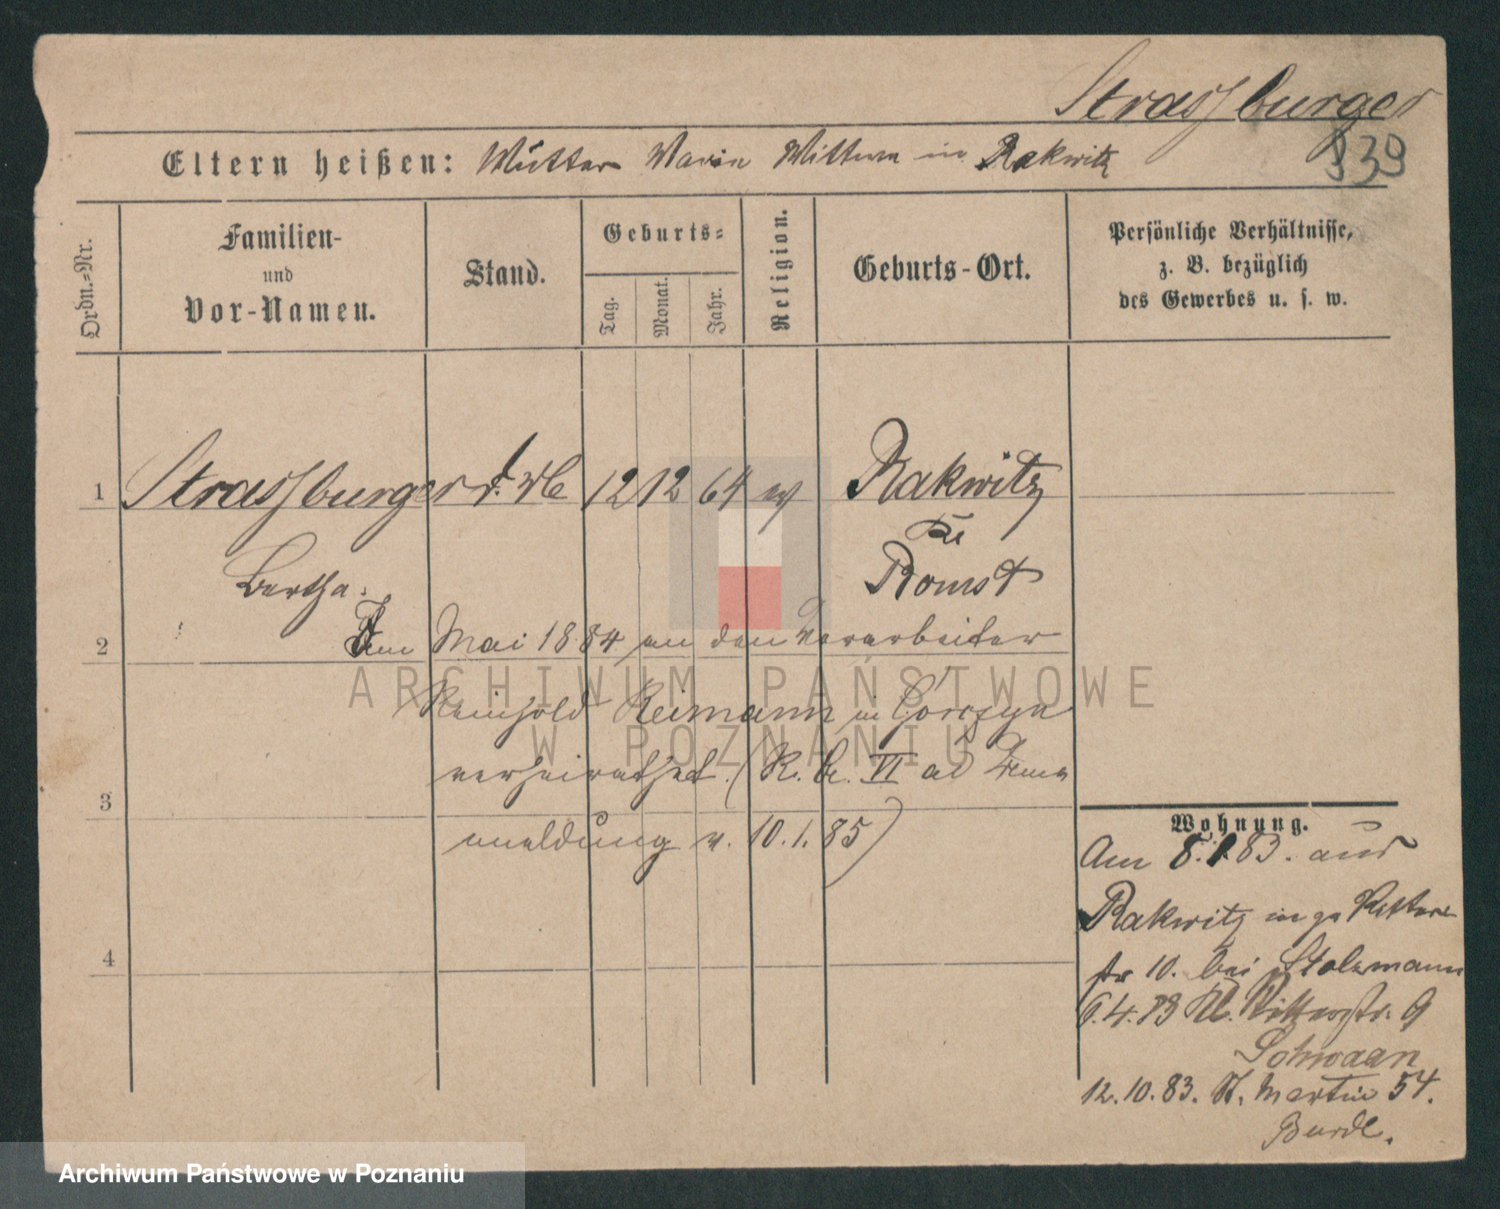 Strassburger
939
Eltern heißen: Mutter Maria Wittwe in Rakwitz
Ordn.-Nr.
Familien-
und
Vor-Namen.
Stand.
Geburts-
Tag.
Monat.
Jahr.
Religion.
Geburts-Ort.
Persönliche Verhältnisse,
z. B. bezüglich
des Gewerbes u. s. w.
1 Strassburger 12 12 64 Rakwitz
Kr
Bomst
Bertha.
2 Am Mai 1884 an den Vorarbeiter
Reinhold Reimann in Gorczyn
verheirathet. (K. b. VI ad
3
meldung v. 10.1.85)
4
Wohnung.
Am 8.1.83. aus
Rakwitz Ritter
str 10. bei Stolzmann
6.4.83 Kl. Ritterstr. 9
Schwaan
12.10.83. St. Martin 54.
ARCHIWUM PAŃSTWOWE
W POZNANIU
Archiwum Państwowe w Poznaniu